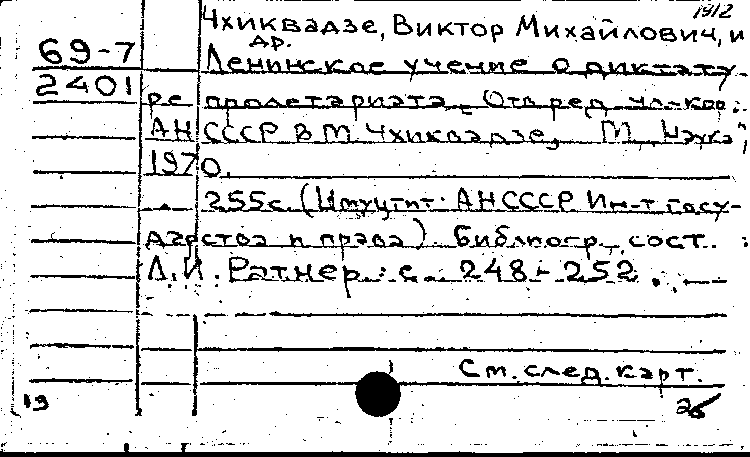 1912
Чхиквадзе, Виктор Михайлович, и
др.
69-7 Ленинское учение о диктату-
2401 ре пролетариата. Отв. ред. чл.-кор.
АН СССР В.М. Чхиквадзе, М., "Наука",
1970.
255 с. ( АН СССР. Ин-т госу-
дарства и права). Библиогр., сост. :
Л.И. Ратнер : с. 248-252.
См. след. карт.
19